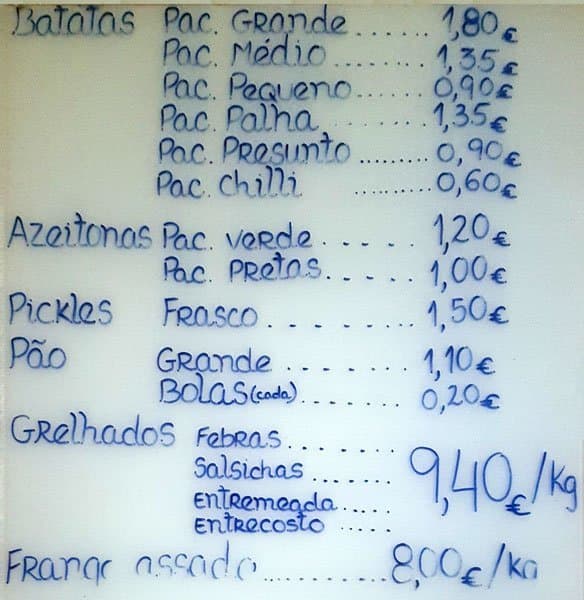 Batatas Pac. Grande...... 1,80€
Pac. Médio......... 1,35€
Pac. Pequeno...... 0,90€
Pac. Palha......... 1,35€
Pac. Presunto......... 0,90€
Pac. Chilli .......... 0,60€
Azeitonas Pac. verde..... 1,20€
Pac. Pretas..... 1,00€
Pickles Frasco....... 1,50€
Pão Grande....... 1,10€
Bolas(cada)....... 0,20€
Grelhados Febras......
Salsichas .......
Entremeada.....
Entrecosto ..... 9,40€/kg
Frango assado........... 8,00€/kg